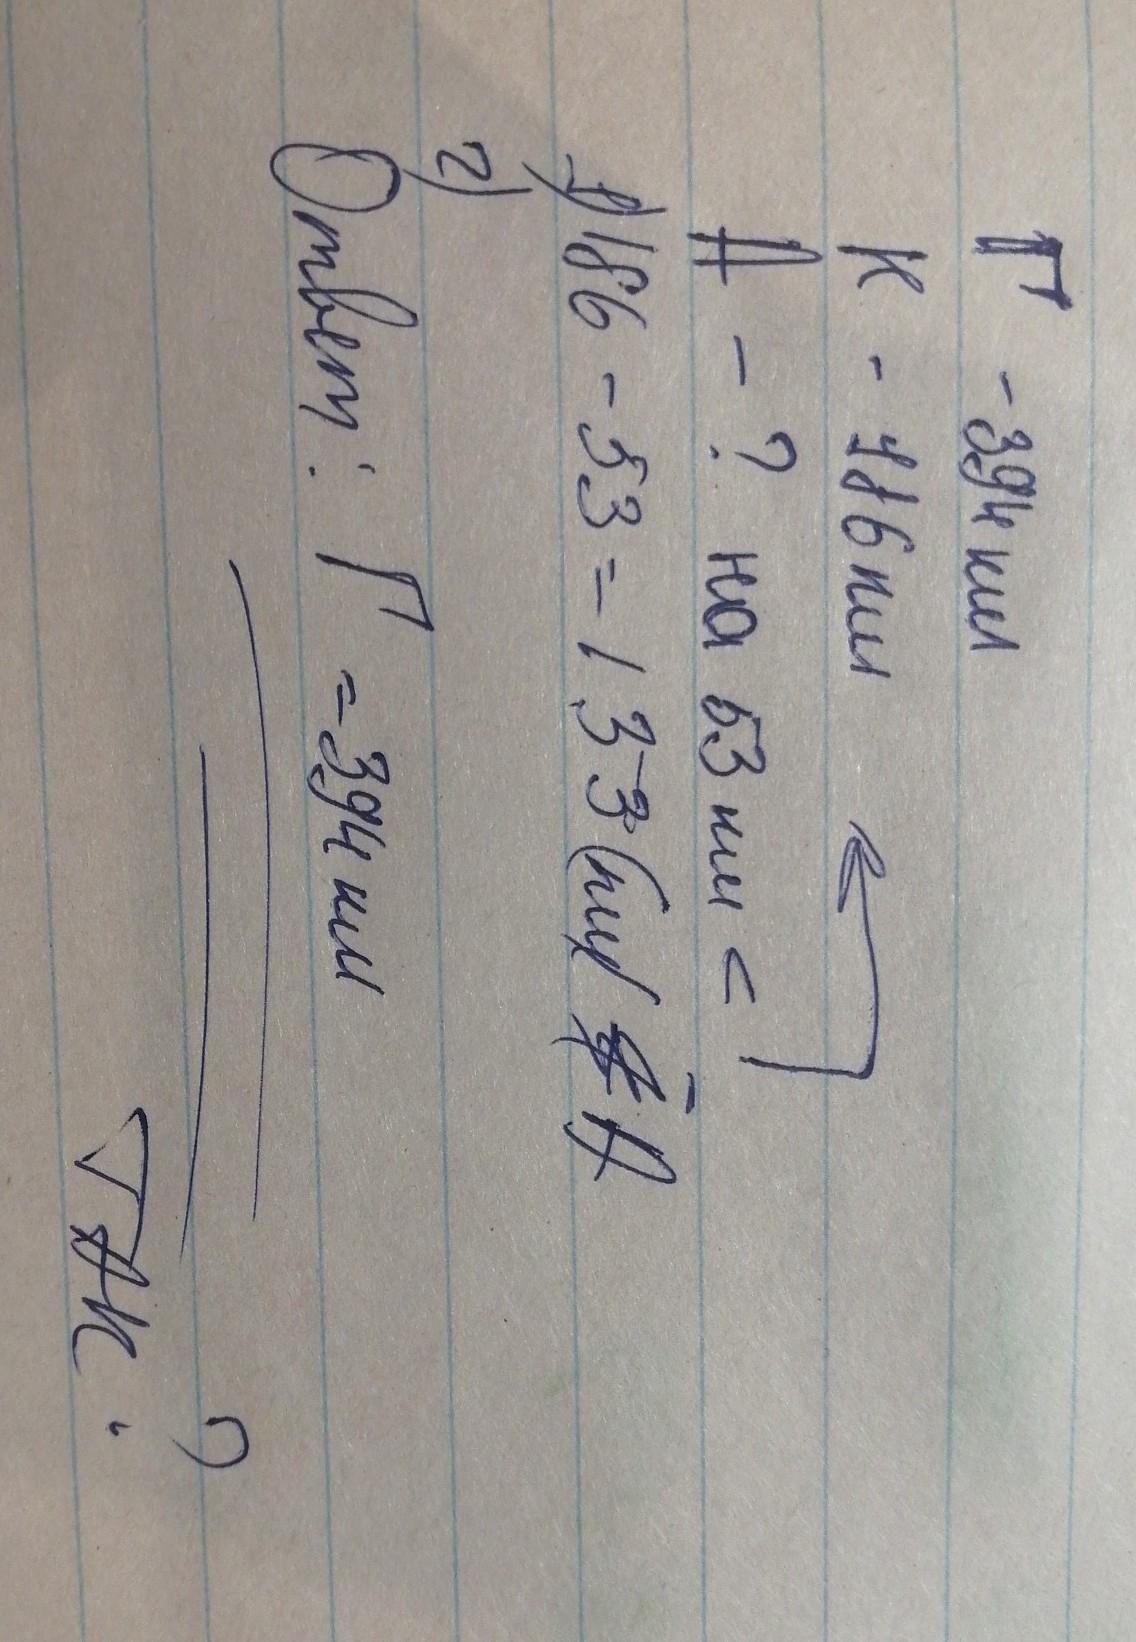 Г - 394 км
К - 186 км
А - ? на 53 км <
1) 186 - 53 = 133 (км) А
2)
Ответ: Г = 394 км
ТАК ?